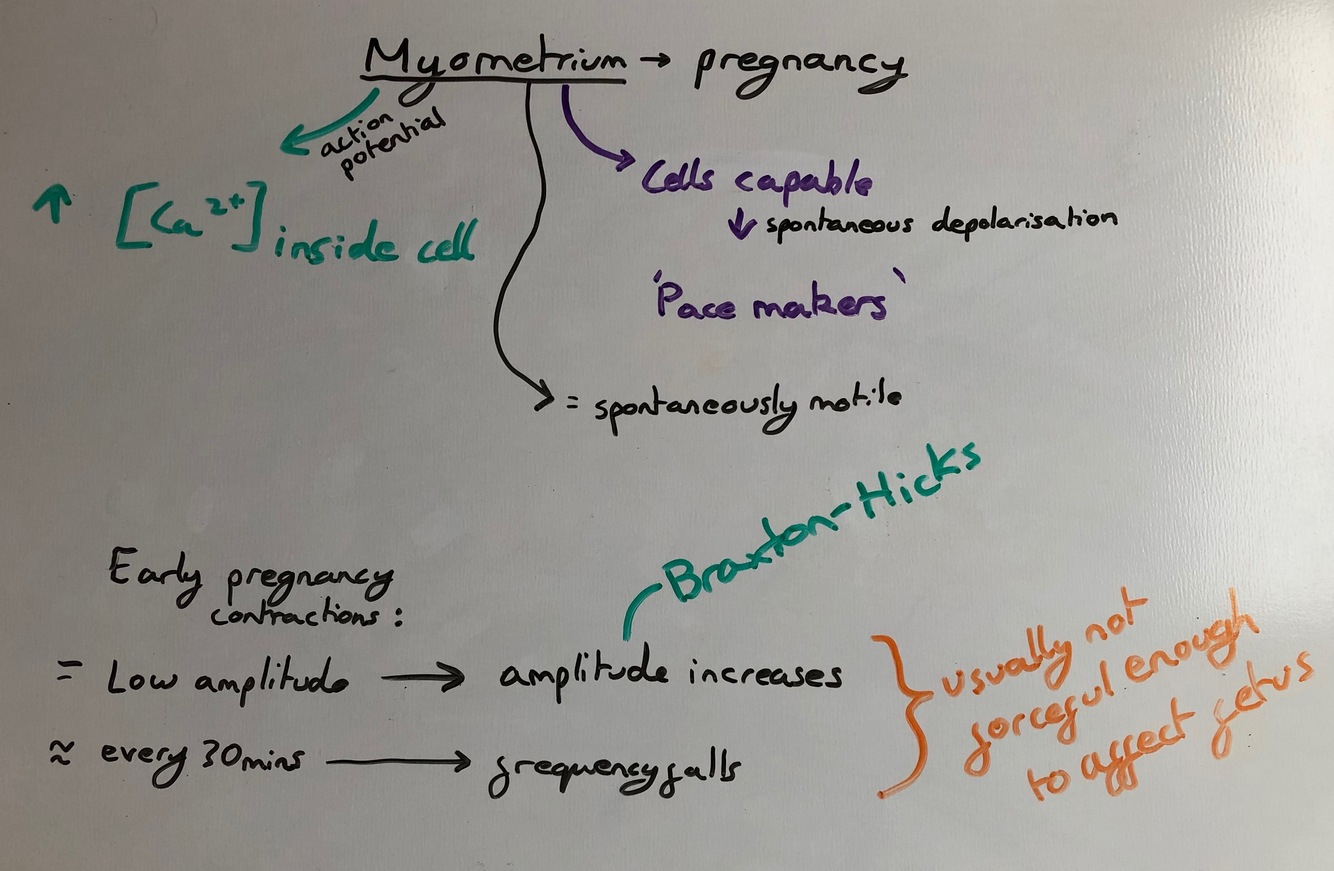 Myometrium → pregnancy
action
potential
↑ [Ca²⁺] inside cell
Cells capable
↓ spontaneous depolarisation
'Pace makers'
= spontaneously motile
Braxton-Hicks
Early pregnancy
contractions :
= Low amplitude → amplitude increases
≈ every 30mins → frequency falls
usually not
forceful enough
to affect fetus